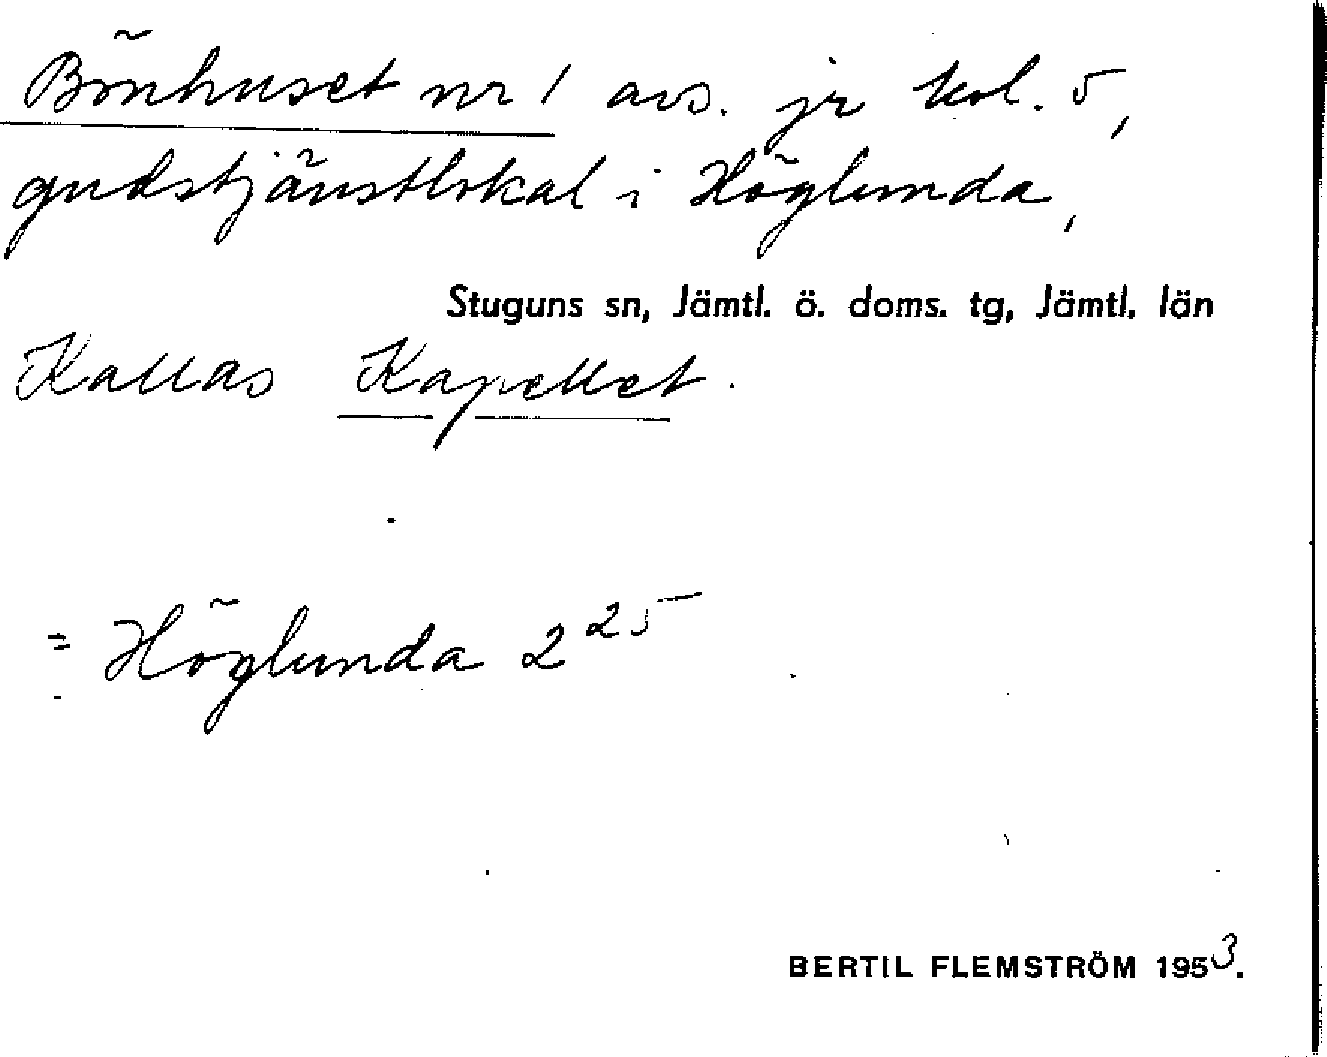 Bönhuset nr 1 avs. jr kol. 5,
gudstjänstlokal i Höglunda,
Stuguns sn, Jämtl. ö. doms. tg, Jämtl. län
Kallas Kapellet.
= Höglunda 2 25
BERTIL FLEMSTRÖM 1953.